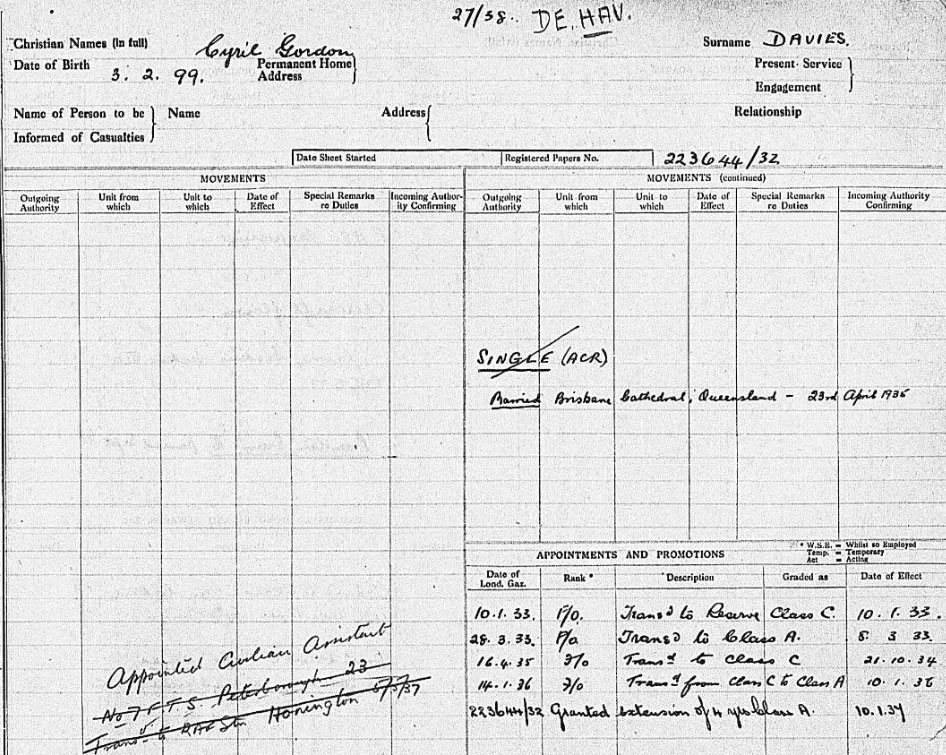 27/38. DE. HAV.
Christian Names (in full) Cyril Gordon Surname DAVIES.
Date of Birth 3. 2. 99. Permanent Home Address Present Service Engagement
Name of Person to be Informed of Casualties Name Address Relationship
Date Sheet Started Registered Papers No. 223644/32
MOVEMENTS MOVEMENTS (continued)
Outgoing Authority Unit from which Unit to which Date of Effect Special Remarks re Duties Incoming Authority Confirming Outgoing Authority Unit from which Unit to which Date of Effect Special Remarks re Duties Incoming Authority Confirming
SINGLE (ACR)
Married Brisbane Cathedral, Queensland - 23rd April 1936
* W.S.E. = Whilst so Employed
Temp. = Temporary
Act = Acting
APPOINTMENTS AND PROMOTIONS
Date of Lond. Gaz. Rank * Description Graded as Date of Effect
10.1.33. F/O. Trans'd to Reserve Class C. 10.1.33.
28.3.33. F/O Trans'd to Class A. 8 3 33.
16.4.35 F/O Trans'd to Class C 21.10.34
14.1.36 F/O Trans'd from Class C to Class A 10.1.36
223644/32 Granted extension of 4 yrs Class A. 10.1.37
Appointed Civilian Assistant
No 7 F.T.S. Peterborough 23
Trans'd to RAF Stn Honington 5/7/37